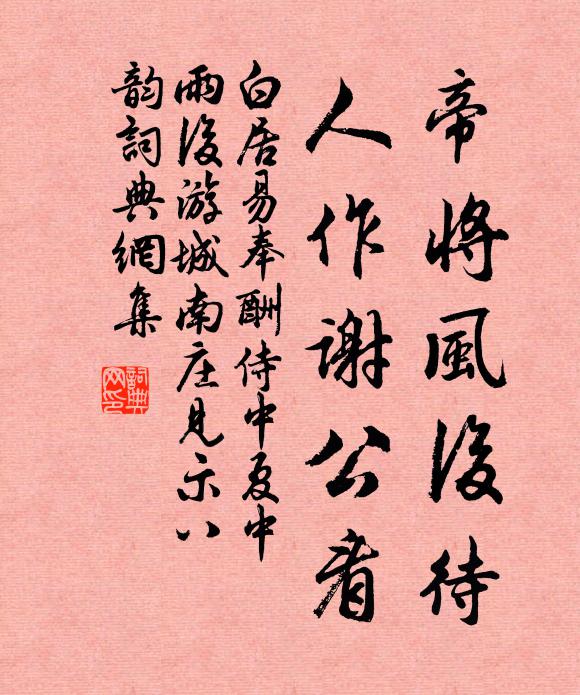 帝將風後待
人作謝公看
白居易奉酬侍中夏中
雨後游城南庄見示八
韵詞典網集
詞典
网印